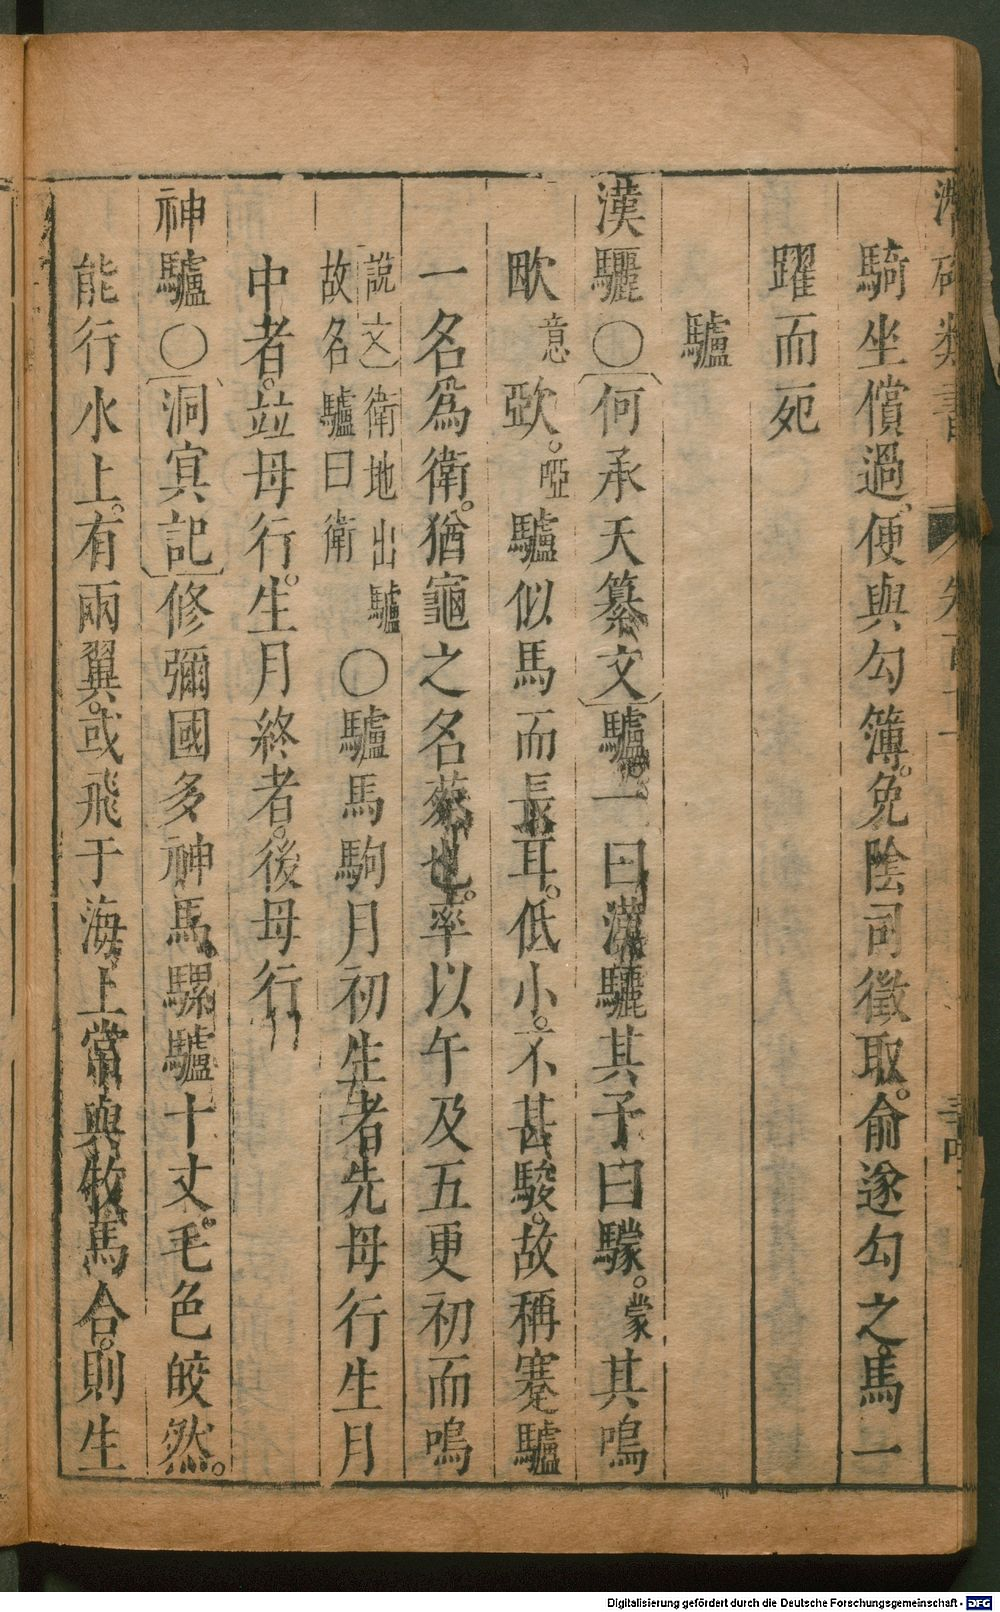 騎坐償過。便與勾簿。免陰司徵取。俞遂勾之。馬一
躍而死
驢
漢驪〇〔何承天纂文〕驢。一曰漢驪其子曰驜。蒙其鳴
歐意歍。啞驢似馬而長耳。低小。不甚駿。故稱蹇驢
一名為衛。猶龜之名蔡也。率以午及五更初而鳴
說文〕衛地出驢
故名驢曰衛
〇驢馬駒月初生者先母行生月
中者。竝母行。生月終者。後母行
神驢〇〔洞冥記〕修彌國多神馬騾驢十丈。毛色皎然。
能行水上。有兩翼。或飛于海上當與牧馬合。則生
Digitalisierung gefördert durch die Deutsche Forschungsgemeinschaft - DFG